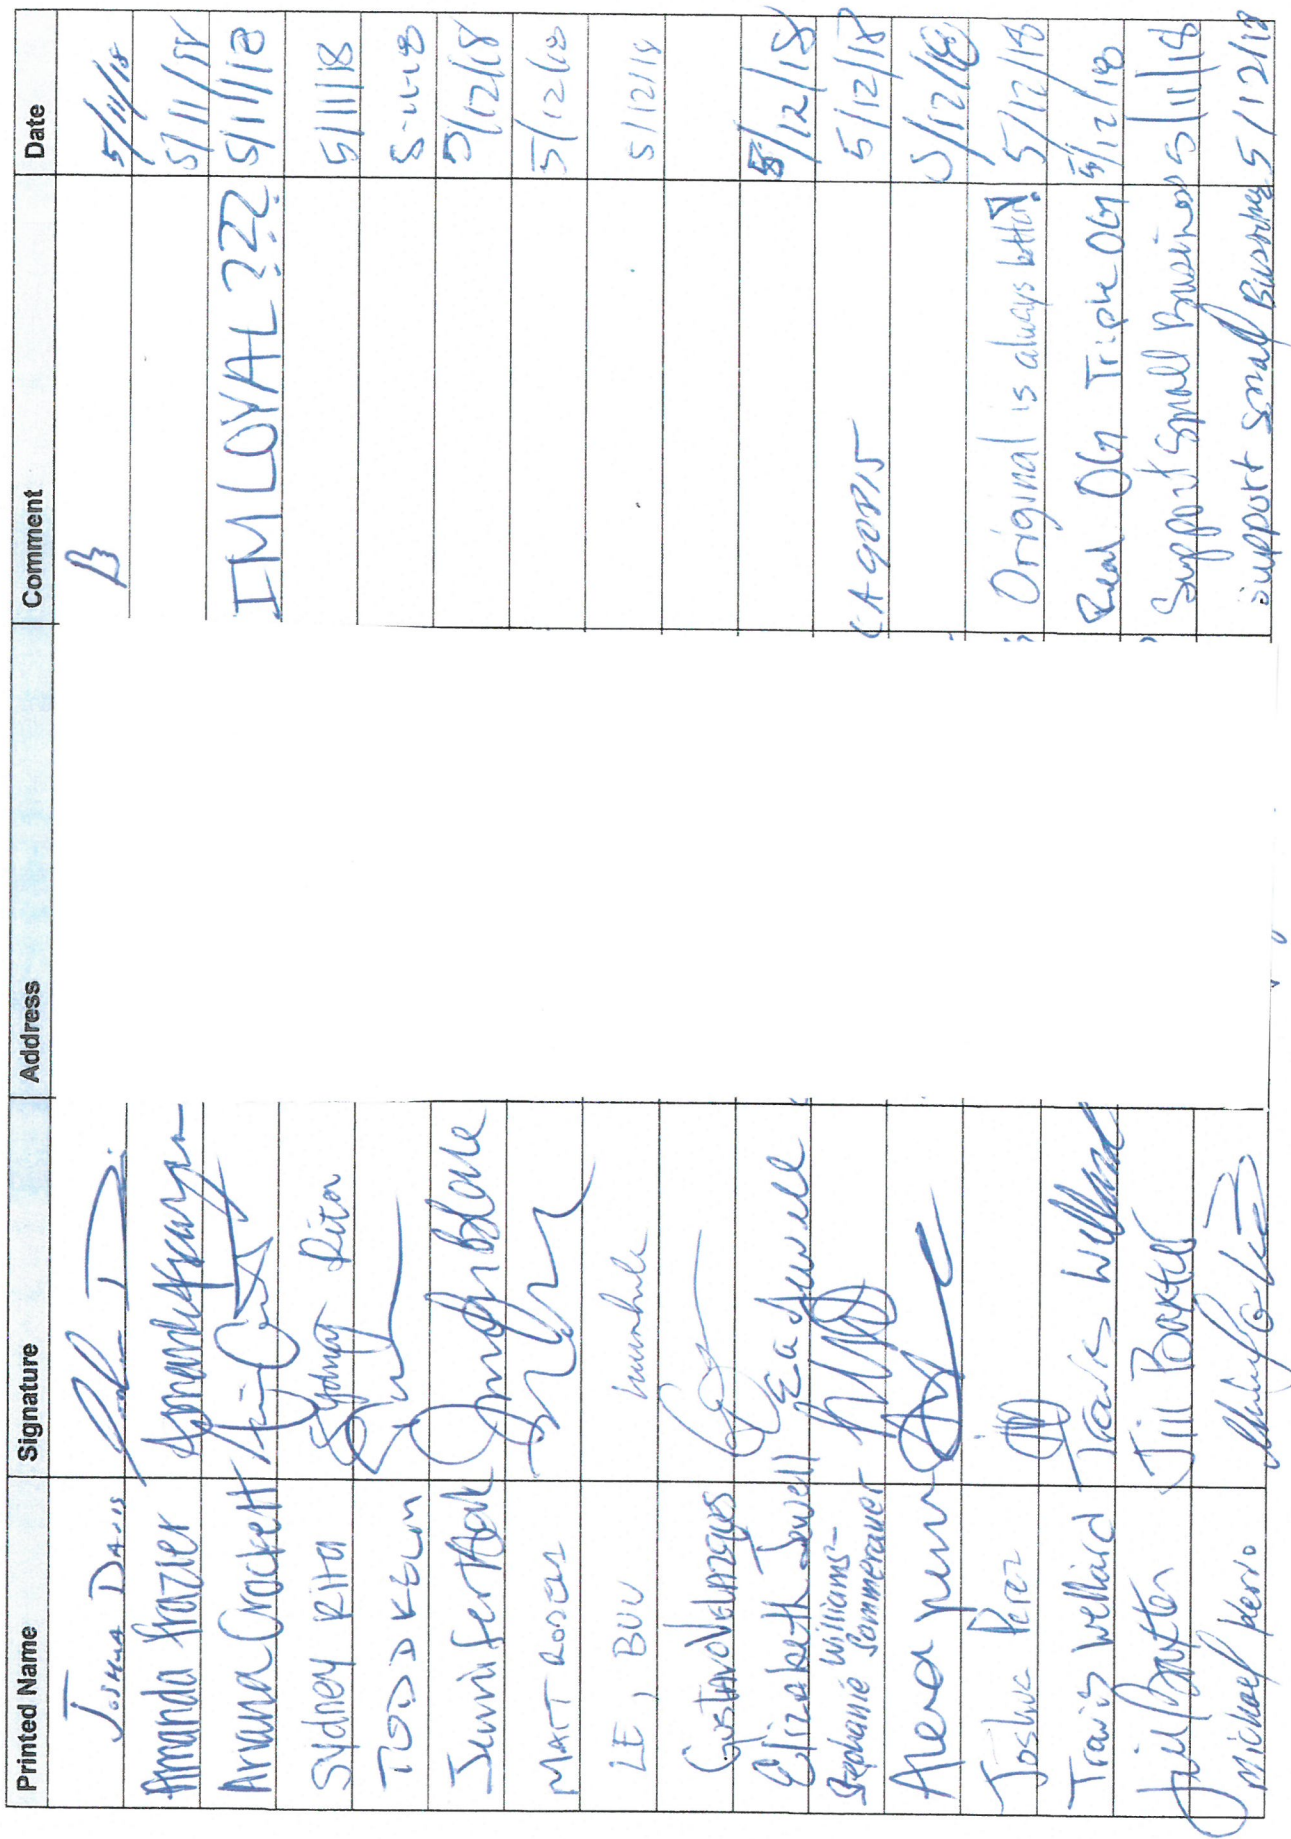 Printed Name Signature Address Comment Date
Joshua Davis 5/11/18
Amanda Frazier 5/11/18
Ariana Crockett I M LOYAL??? 5/11/18
Sydney Rita Sydney Rita 5/11/18
TODD KELM 5-11-18
Jennifer 5/12/18
MATT RODGERS 5/12/18
LE, BUU 5/12/18
Gustavo Velazquez
Elizabeth Jewell Jewell 5/12/18
Stephanie Williams-Sommerauer 5/12/18
5/12/18
Joshua Perez Original is always better 5/12/18
Travis Wellard Travis Wellard Real OG Triple OG 5/12/18
Jill Baxter Jill Baxter Support Small Business 5/11/18
Michael Support Small Business 5/12/18